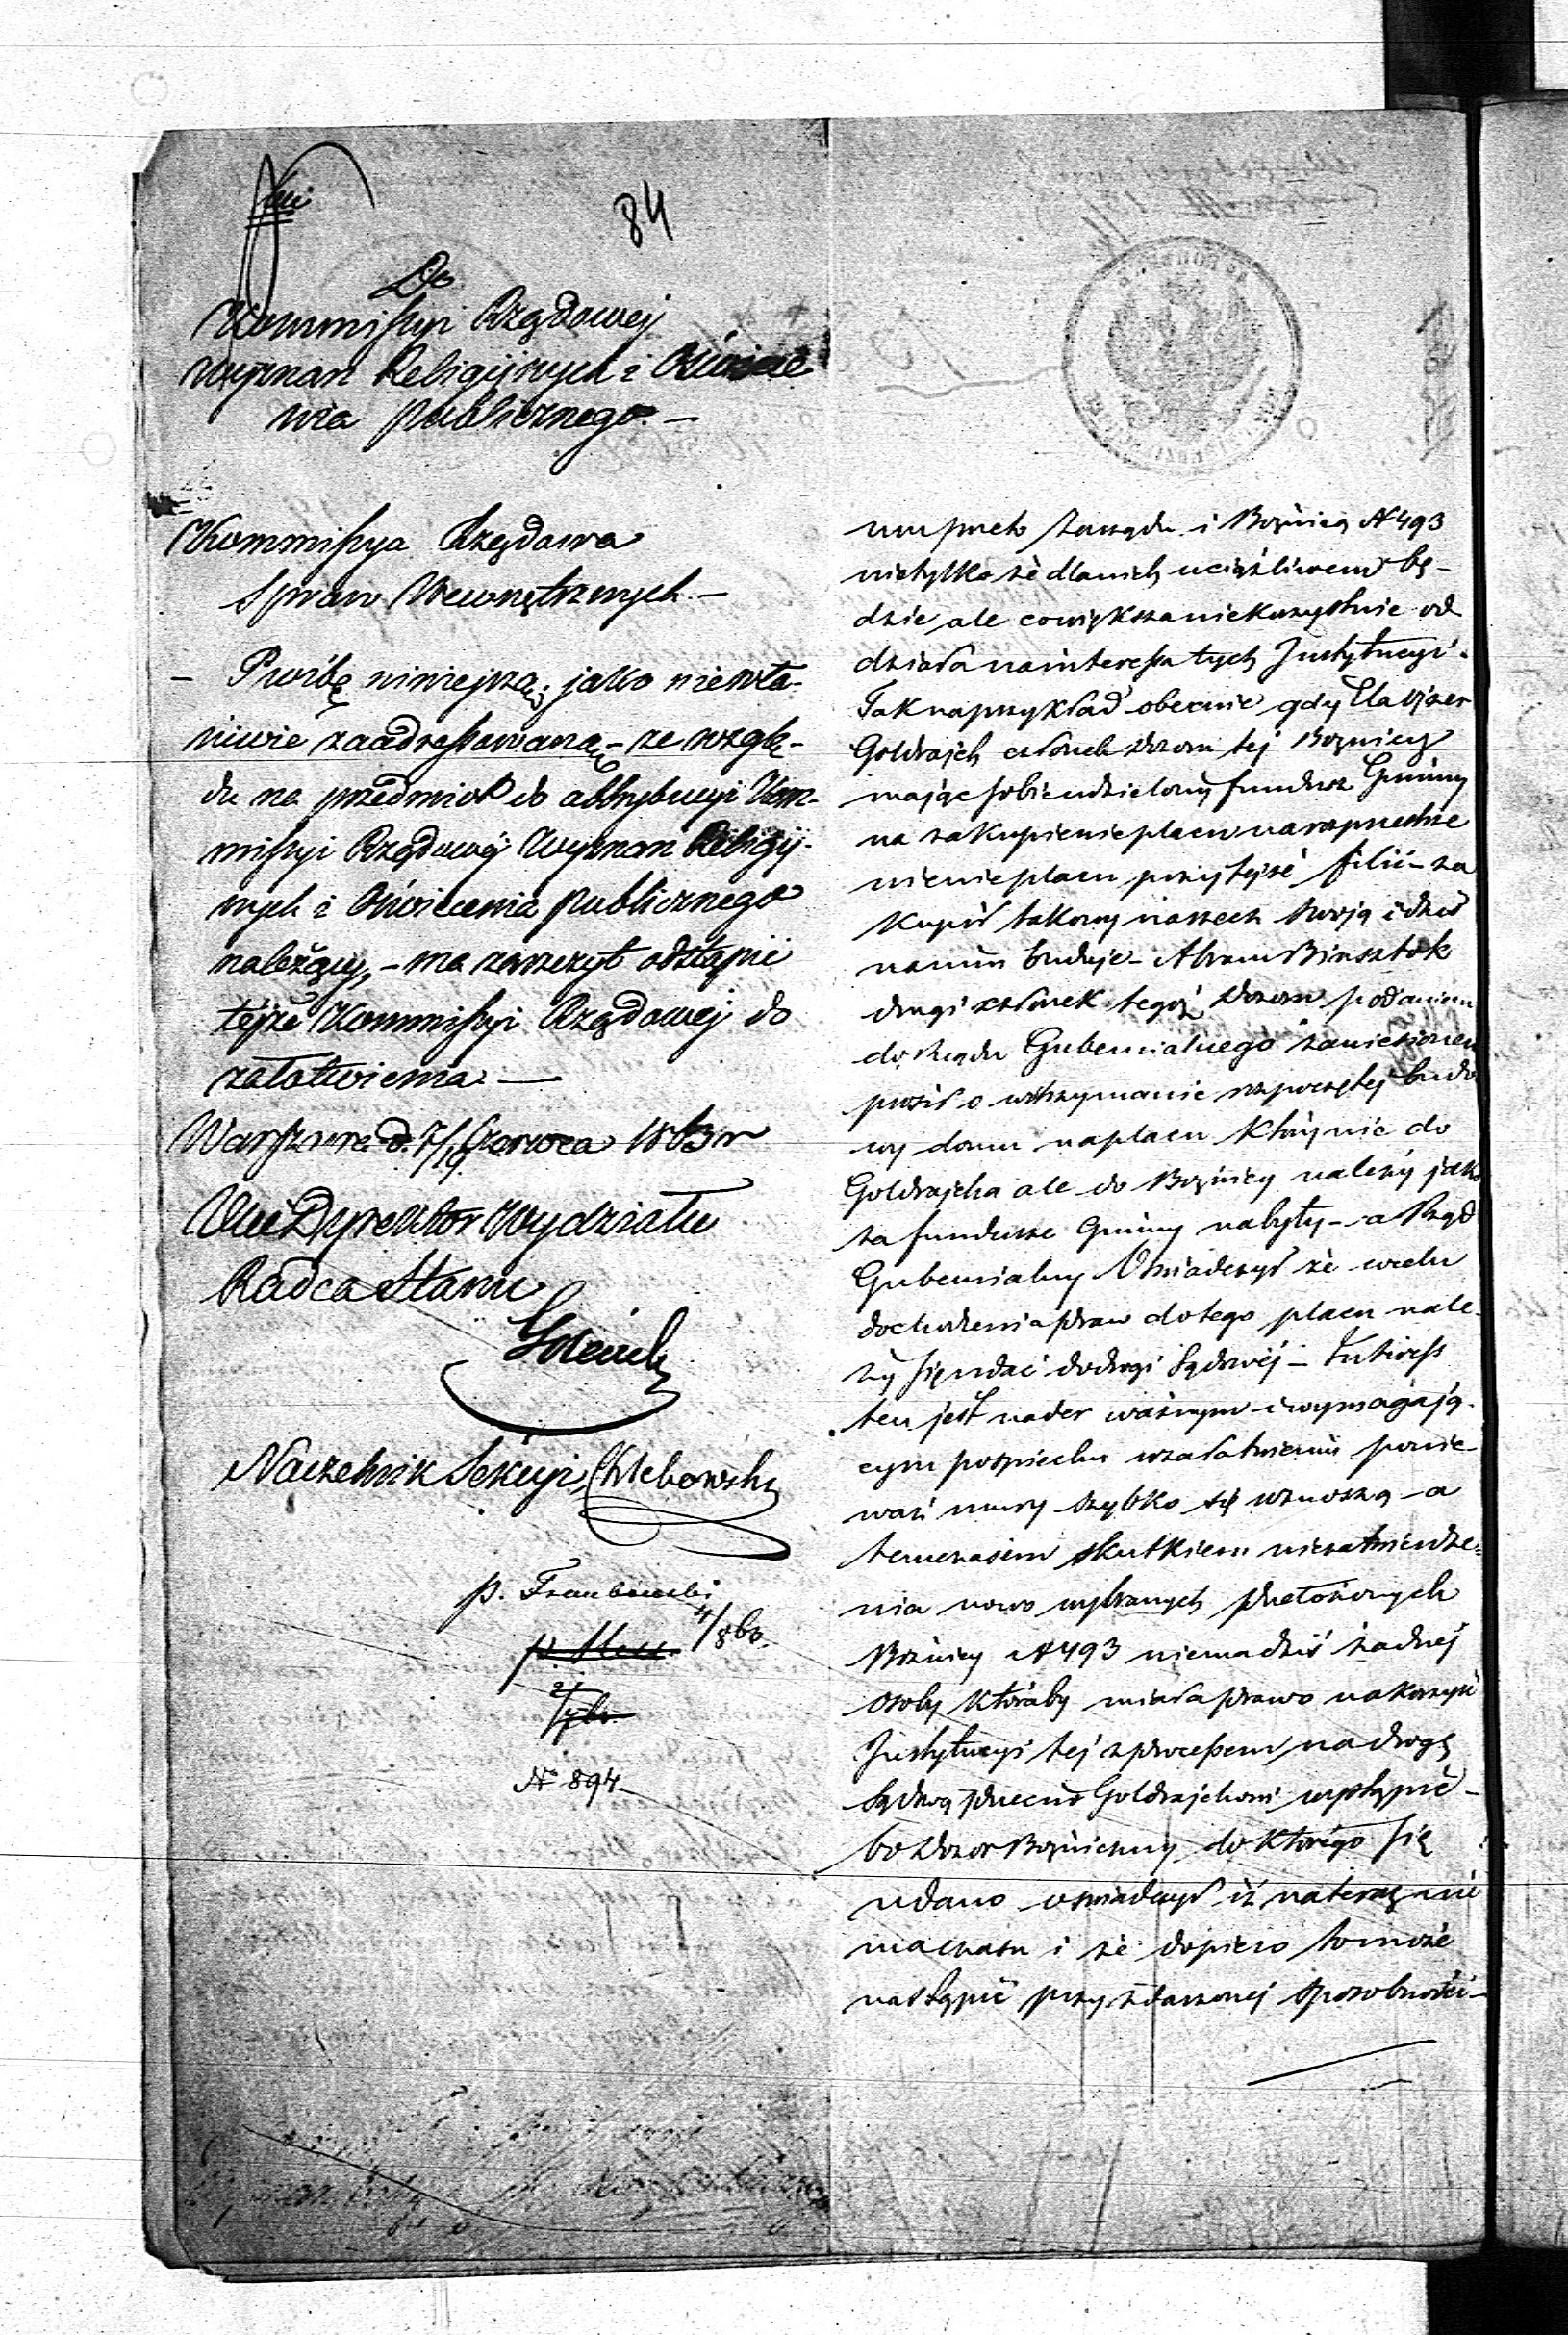 84
Do
Kommissyi Rządowej
Wyznań Religijnych i Oświece
nia publicznego. —
Kommissya Rządowa
Spraw Wewnętrznych. —
— Prośbę niniejszą, jako niewła-
ściwie zaadressowaną – ze wzglę-
du na przedmiot do attrybucyi Kom-
missyi Rządowej Wyznań Religij-
nych i Oświecenia publicznego
należący, – ma zaszczyt odstąpić
tejże Kommissyi Rządowej do
załatwienia. —
Warszawa d. 7/19 Czerwca 1863 r
Vice Dyrektor Wydziału
Radca Stanu
Naczelnik Sekcyi, Chlebowski
p.
4/8 bo.
p.
N° 894
zarządu i Bożnicą N 493
nietylko że dla nich uciążliwem bę-
dzie ale co większa niekorzystnie od
działa na interessa tych Instytucyi.
Tak naprzykład obecnie gdy
Goldrajch członek dozoru tej Bożnicy
mając sobie udzielony fundusz Gminy
na zakupienie placu na rozprzestrze
nienie placu przy tejże filii – za
kupił takowy na rzecz swoją i dziś
na nim buduje – Abram Binsztok
drugi członek tegoż dozoru podaniem
do Rządu Gubernialnego zaniesionem
prosił o wstrzymanie rozpoczętej budo
wy domu na placu który nie do
Goldrajcha ale do Bożnicy należy jako
za fundusze Gminy nabyty – a Rząd
Gubernialny Oświadczył że w celu
dochodzenia praw do tego placu nale-
ży się udać do drogi Sądowej – Interess
ten jest nader ważnym i wymagają-
cym pośpiechu w załatwieniu ponie-
waż mury szybko się wznoszą – a
tymczasem skutkiem niezatwierdze-
nia nowo wybranych przełożonych
Bóżnicy N 493 niema dziś żadnej
osoby któraby miała prawo na korzyść
Instytucyi tej z processem na drogę
Sądową przeciw Goldrajchowi wystąpić –
bo Dozor Bożniczny do którego się
udano oświadczył iż na teraz nie
ma czasu i że dopiero to może
nastąpić przy zdarzonej sposobności –